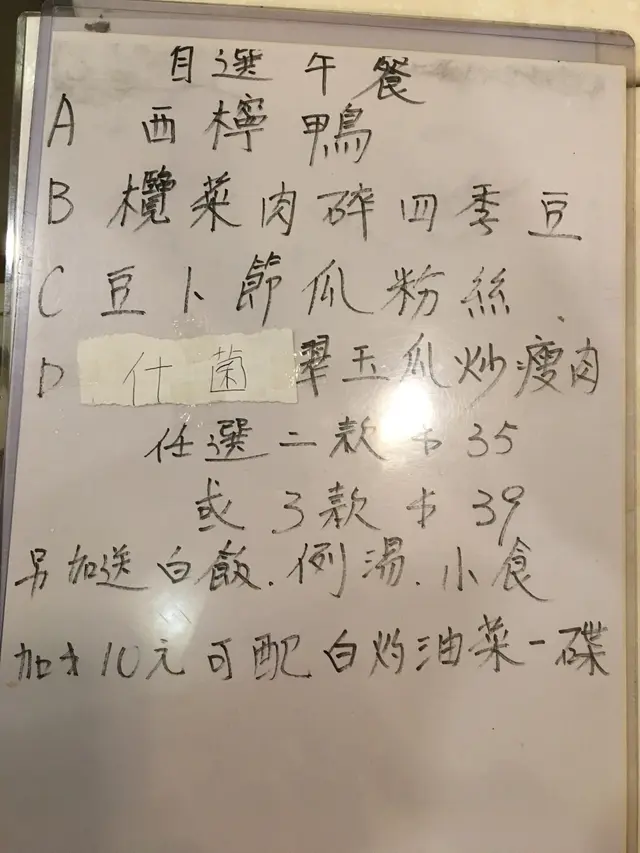 自選午餐
A 西檸鴨
B 欖菜肉碎四季豆
C 豆卜節瓜粉絲
D 什菌翠玉瓜炒瘦肉
任選二款 $ 35
或 3款 $ 39
另加送白飯.例湯.小食
加$10元可配白灼油菜一碟